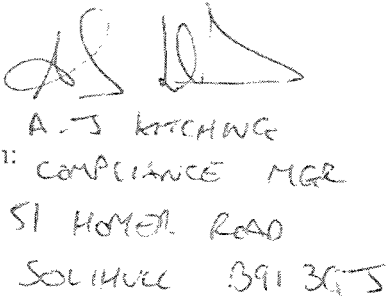 A.J KITCHING
1: COMPLIANCE MGR
51 HOMER ROAD
SOLIHULL B91 3QJ